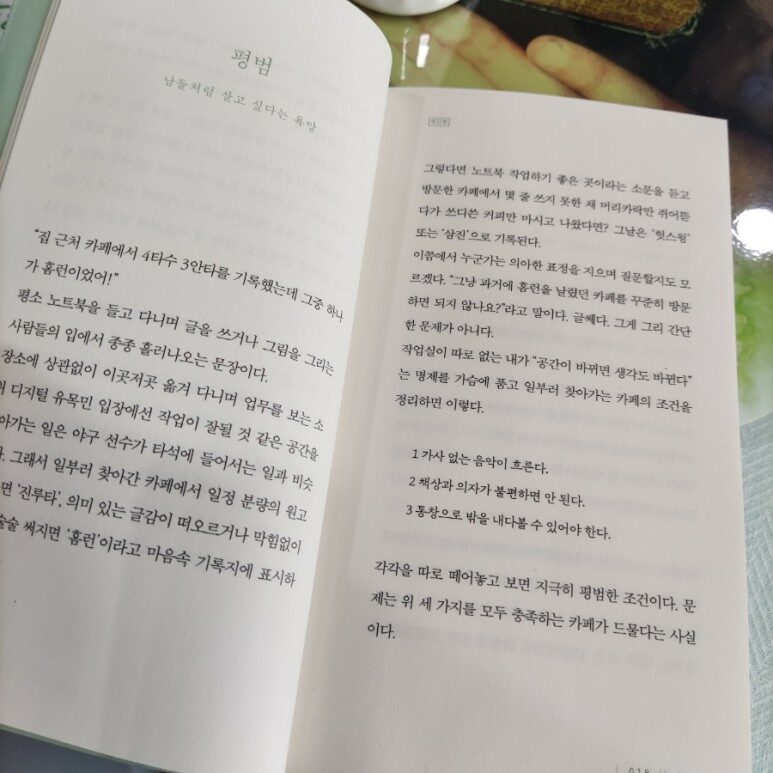 평범
남들처럼 살고 싶다는 욕망
“집 근처 카페에서 4타수 3안타를 기록했는데 그중 하나
가 홈런이었어!”
평소 노트북을 들고 다니며 글을 쓰거나 그림을 그리는
사람들의 입에서 종종 흘러나오는 문장이다.
장소에 상관없이 이곳저곳 옮겨 다니며 업무를 보는 소
디지털 유목민 입장에선 작업이 잘될 것 같은 공간을
아가는 일은 야구 선수가 타석에 들어서는 일과 비슷
그래서 일부러 찾아간 카페에서 일정 분량의 원고
면 ‘진루타’, 의미 있는 글감이 떠오르거나 막힘없이
술술 써지면 ‘홈런’이라고 마음속 기록지에 표시하
평범
그렇다면 노트북 작업하기 좋은 곳이라는 소문을 듣고
방문한 카페에서 몇 줄 쓰지 못한 채 머리카락만 쥐어뜯
다가 쓰디쓴 커피만 마시고 나왔다면? 그날은 ‘헛스윙’
또는 ‘삼진’으로 기록된다.
이쯤에서 누군가는 의아한 표정을 지으며 질문할지도 모
르겠다. “그냥 과거에 홈런을 날렸던 카페를 꾸준히 방문
하면 되지 않나요?”라고 말이다. 글쎄다. 그게 그리 간단
한 문제가 아니다.
작업실이 따로 없는 내가 “공간이 바뀌면 생각도 바뀐다”
는 명제를 가슴에 품고 일부러 찾아가는 카페의 조건을
정리하면 이렇다.
1 가사 없는 음악이 흐른다.
2 책상과 의자가 불편하면 안 된다.
3 통창으로 밖을 내다볼 수 있어야 한다.
각각을 따로 떼어놓고 보면 지극히 평범한 조건이다. 문
제는 위 세 가지를 모두 충족하는 카페가 드물다는 사실
이다.
018